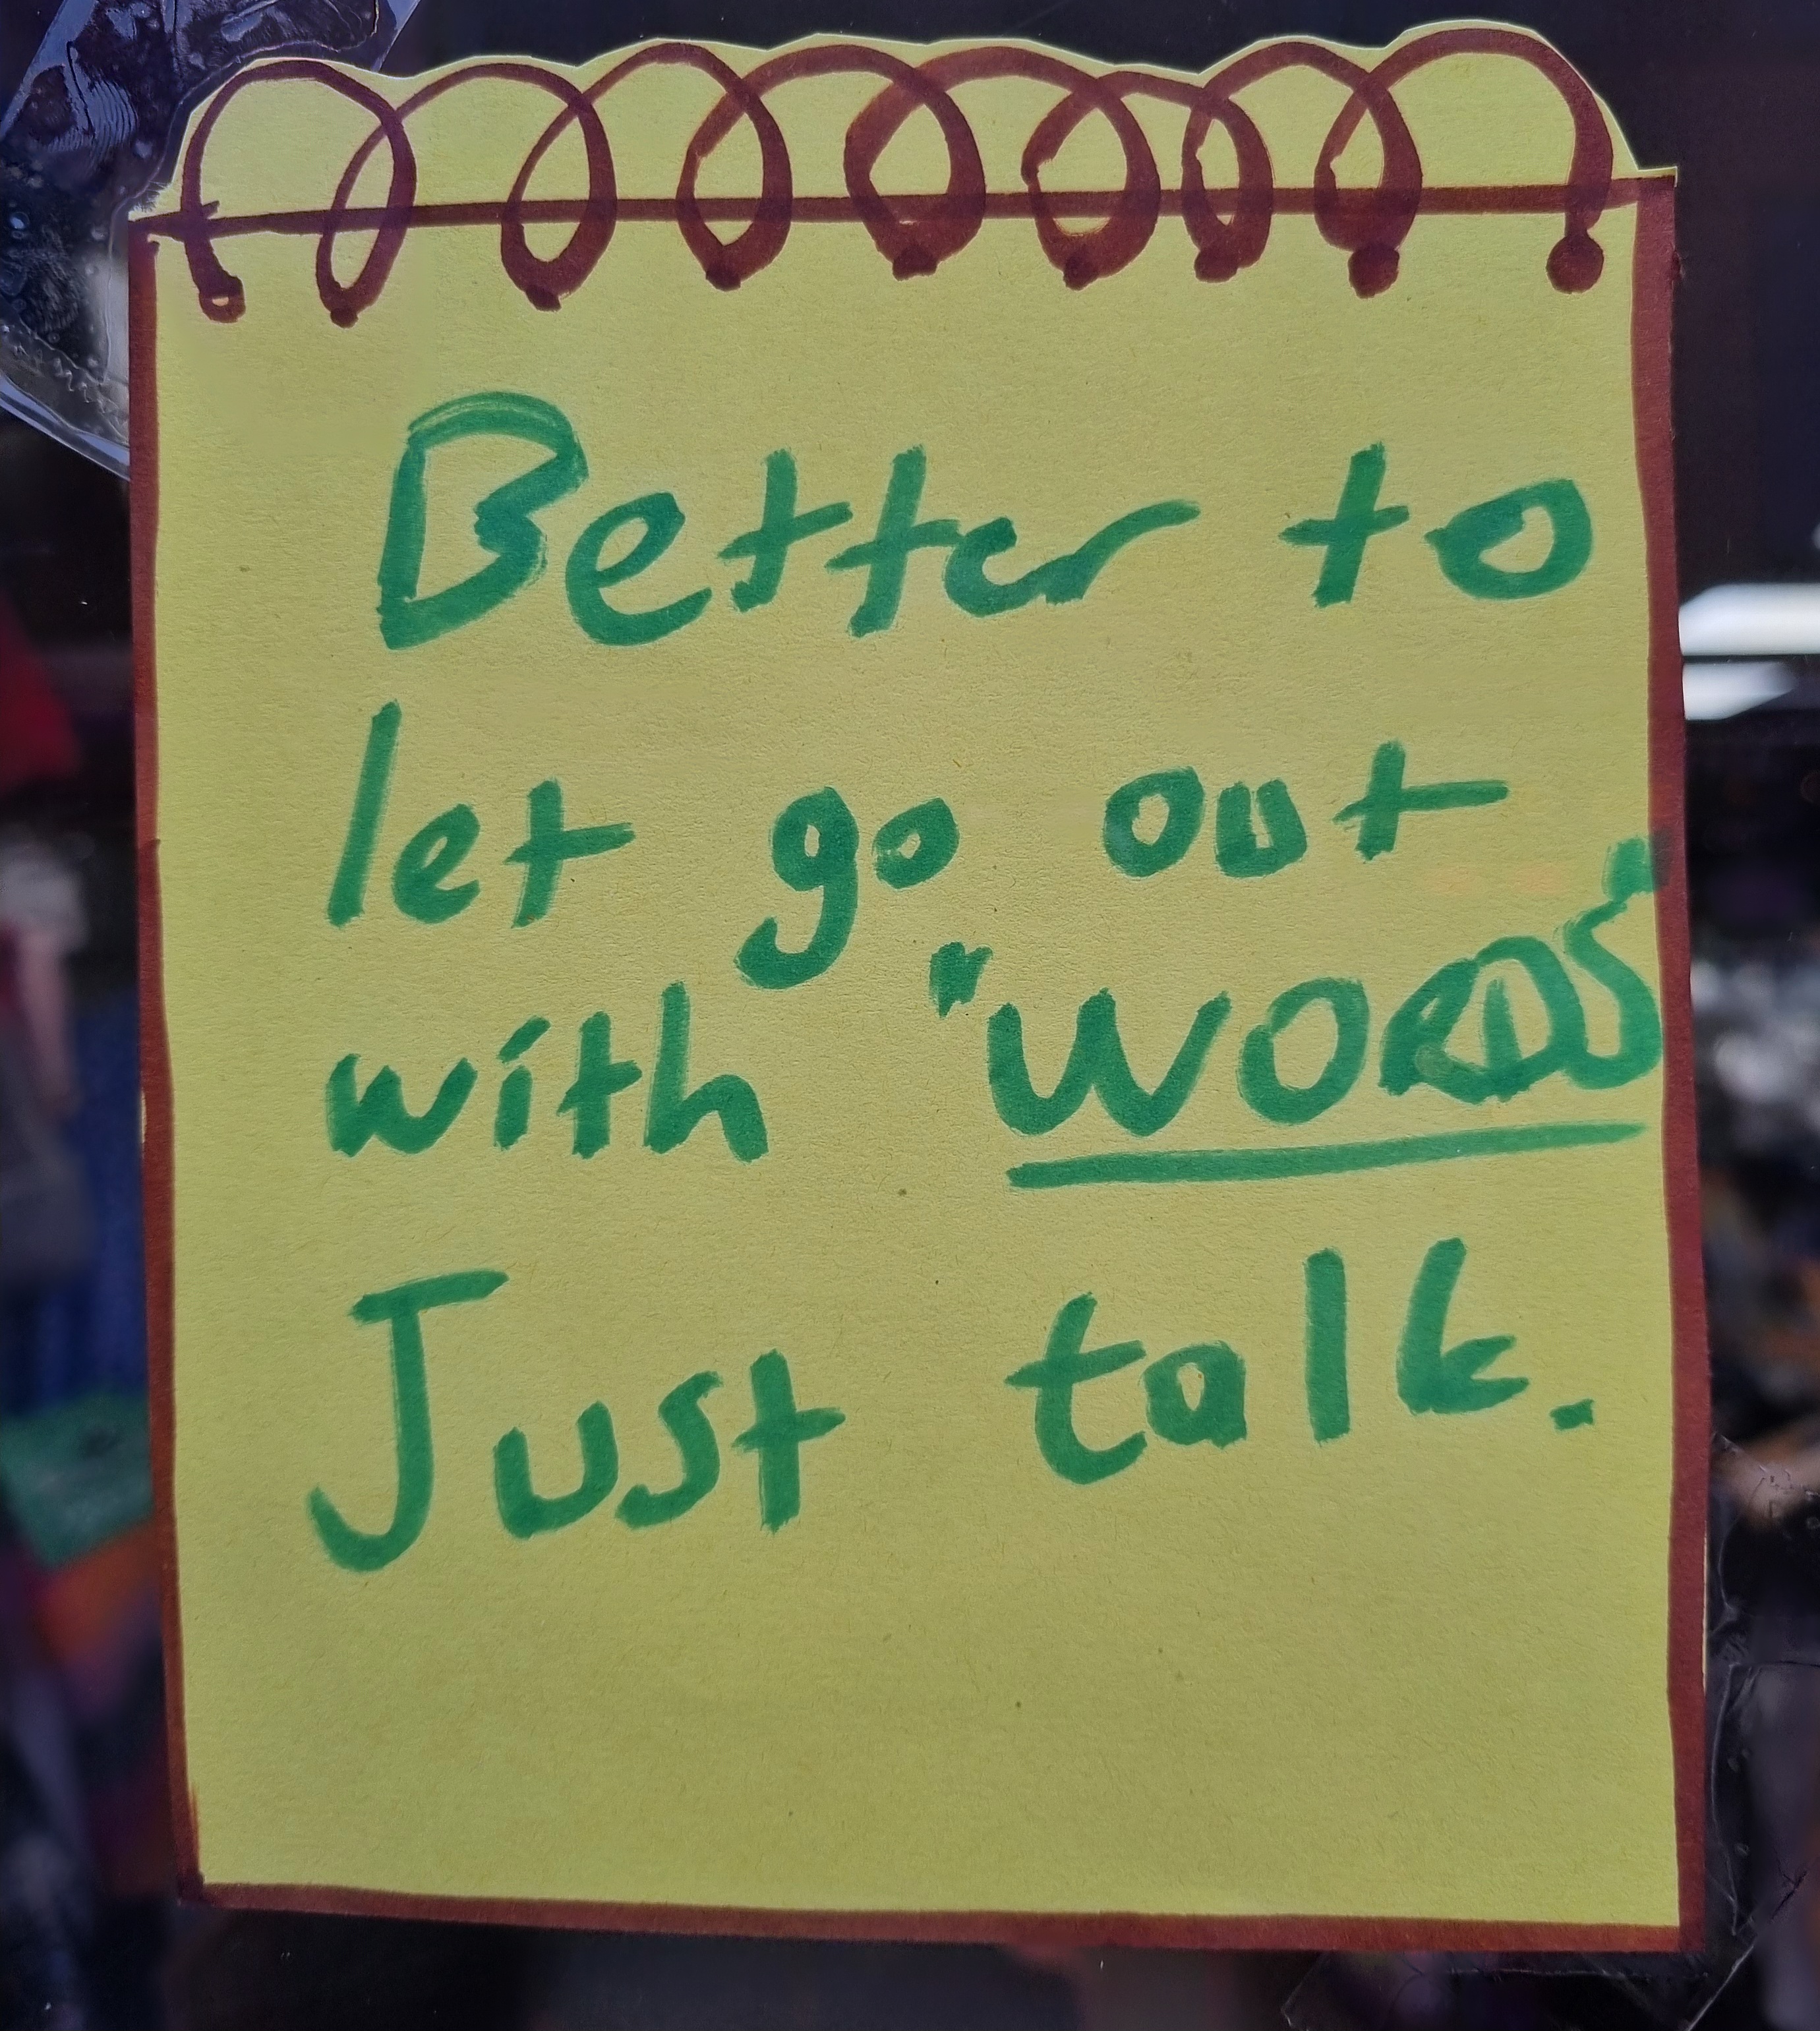 Better to
let go out
with "WORDS"
Just talk.